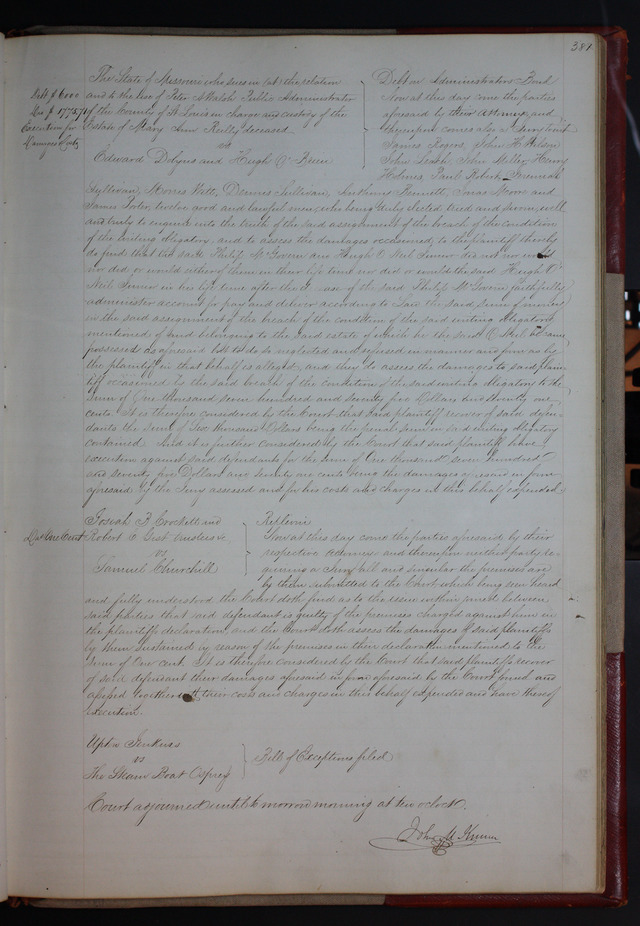 389
The State of Missouri who sues in (at) the relation
and to the use of Peter A Walsh Public Administrator
of the County of St Louis in charge and custody of the
Estate of Mary Ann Reilly deceased
vs
Edward Dobyns and Hugh O'Brien
Debt $ 6000
Dam $ 1775.71
Execution for
Damages & Costs
Debt on Administrators Bond
Now at this day come the parties
aforesaid by their Attorneys and
thereupon comes also a Jury to wit
James Rogers John H Wilson
John Leach, John Miller, Henry
Holmes, Paul Robert, Jeremiah
Sullivan, Morris Witt, Dennis Sullivan, Anthony Bennett, Jonas Moore and
James Porter, twelve good and lawful men, who being duly elected tried and sworn well
and truly to enquire into the truth of the said assignment of the breach of the condition
of the writing obligatory, and to assess the damages occasioned to the plaintiff thereby
do find that the said Philip McGovern and Hugh O'Neil Junior did not nor would
nor did or would either of them in their life time nor did or would the said Hugh O'
Neil Junior in his life time after the of the said Philip McGovern faithfully
administer account for pay and deliver according to Law the said sum of money
in the said assignment of the breach of the condition of the said writing obligatory
mentioned of and belonging to the said estate of which he the said O'Neil became
possessed as aforesaid but to do so neglected and refused in manner and form as by
the plaintiff in that behalf is alleged, and they do assess the damages to said plain-
tiff occasioned by the said breach of the condition of the said writing obligatory to the
sum of One thousand seven hundred and seventy five Dollars and seventy one
cents. It is therefore considered by the Court that said plaintiff recover of said defen-
dants the sum of Six thousand Dollars being the penal sum in said writing obligatory
contained. And it is further considered by the Court that said plaintiff have
execution against said defendants for the sum of One thousand seven hundred
and seventy five Dollars and seventy one cents being the damages aforesaid in form
aforesaid by the Jury assessed and for his costs and charges in this behalf expended
Josiah B Crockett and
Robert C Gest trustees &c
vs
Samuel Churchill
Dam One Cent
Replevin
Now at this day come the parties aforesaid by their
respective attorneys and thereupon neither party re-
quiring a Jury all and singular the premises are
by them submitted to the Court which being seen heard
and fully understood the Court doth find as to the issue within joined between
said parties that said defendant is guilty of the premises charged against him in
the plaintiffs declaration, and the Court doth assess the damages of said plaintiffs
by them sustained by reason of the premises in their declaration mentioned to the
sum of One cent. It is therefore considered by the Court that said plaintiffs recover
of said defendant their damages aforesaid in form aforesaid by the Court found and
assessed together with their costs and charges in this behalf expended and have thereof
execution.
Upton Jenkins
vs
The Steam Boat Osprey
Bill of Exceptions filed
Court adjourned until tomorrow morning at ten o'clock.
John M Krum